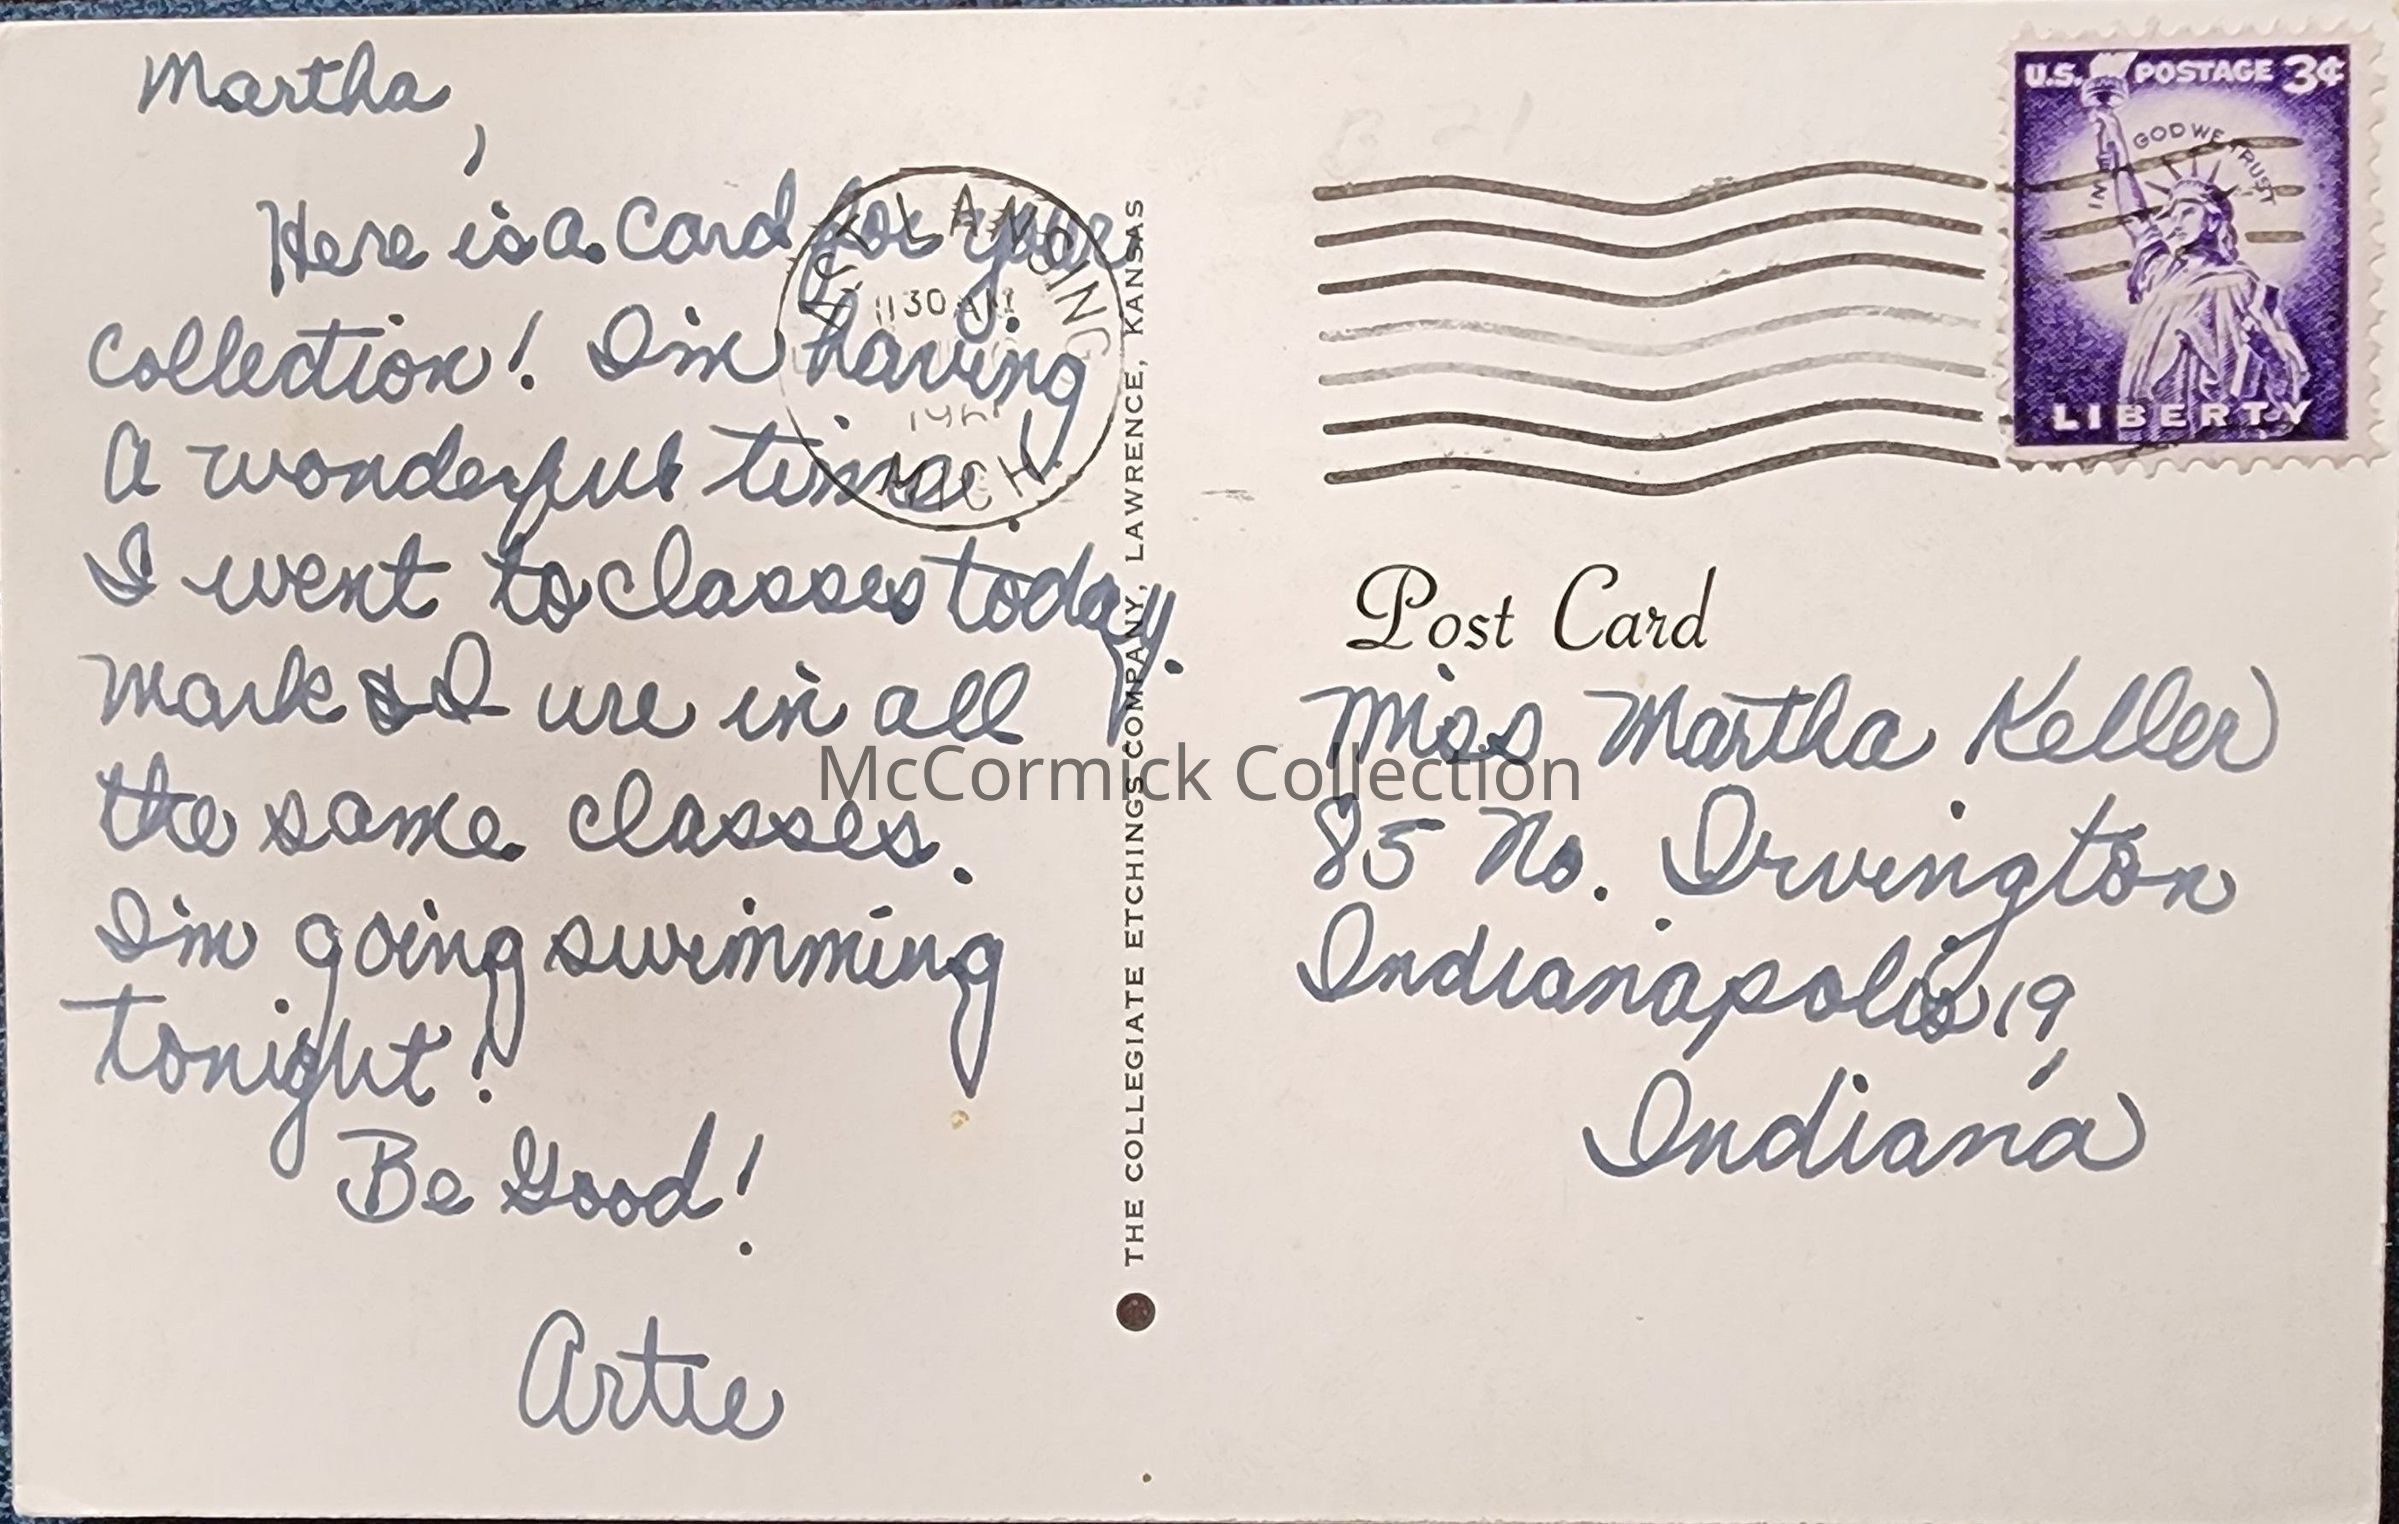 Martha,
Here is a Card for your
collection! I'm having
A wonderful time!
I went to classes today!
Mark & I are in all
the same classes.
I'm going swimming
tonight!
Be Good!
Artie
LANSING
1130 AM
MICH.
THE COLLEGIATE ETCHINGS COMPANY, LAWRENCE, KANSAS
U.S. POSTAGE 3¢
IN GOD WE TRUST
LIBERTY
Post Card
Miss Martha Keller
85 No. Irvington
Indianapolis 19,
Indiana
McCormick Collection